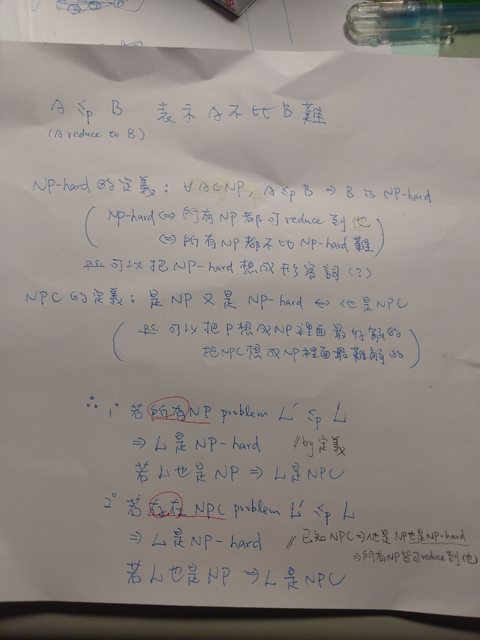 A ≤p B 表示 A 不比 B 難
(A reduce to B)
NP-hard 的定義: ∀A∈NP, A ≤p B ⇒ B is NP-hard
(NP-hard ⇔ 所有NP都可reduce到他
⇔ 所有NP都不比NP-hard難)
可以把NP-hard想成形容詞(?)
NPC的定義: 是NP又是NP-hard ⇔ 他是NPC
(可以把P想成NP裡面最好解的
把NPC想成NP裡面最難解的)
∴ 1° 若所有NP problem L' ≤p L
⇒ L是NP-hard //by定義
若L也是NP ⇒ L是NPC
2° 若存在NPC problem L' ≤p L
⇒ L是NP-hard // 已知NPC⇒他是NP也是NP-hard
⇒所有NP皆可reduce到他
若L也是NP ⇒ L是NPC